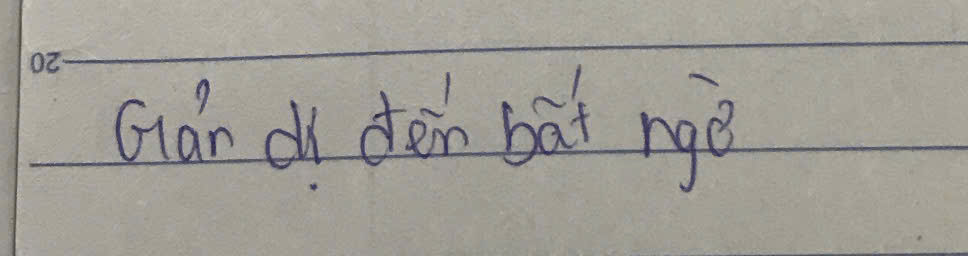 20
Giản dị đến bất ngờ